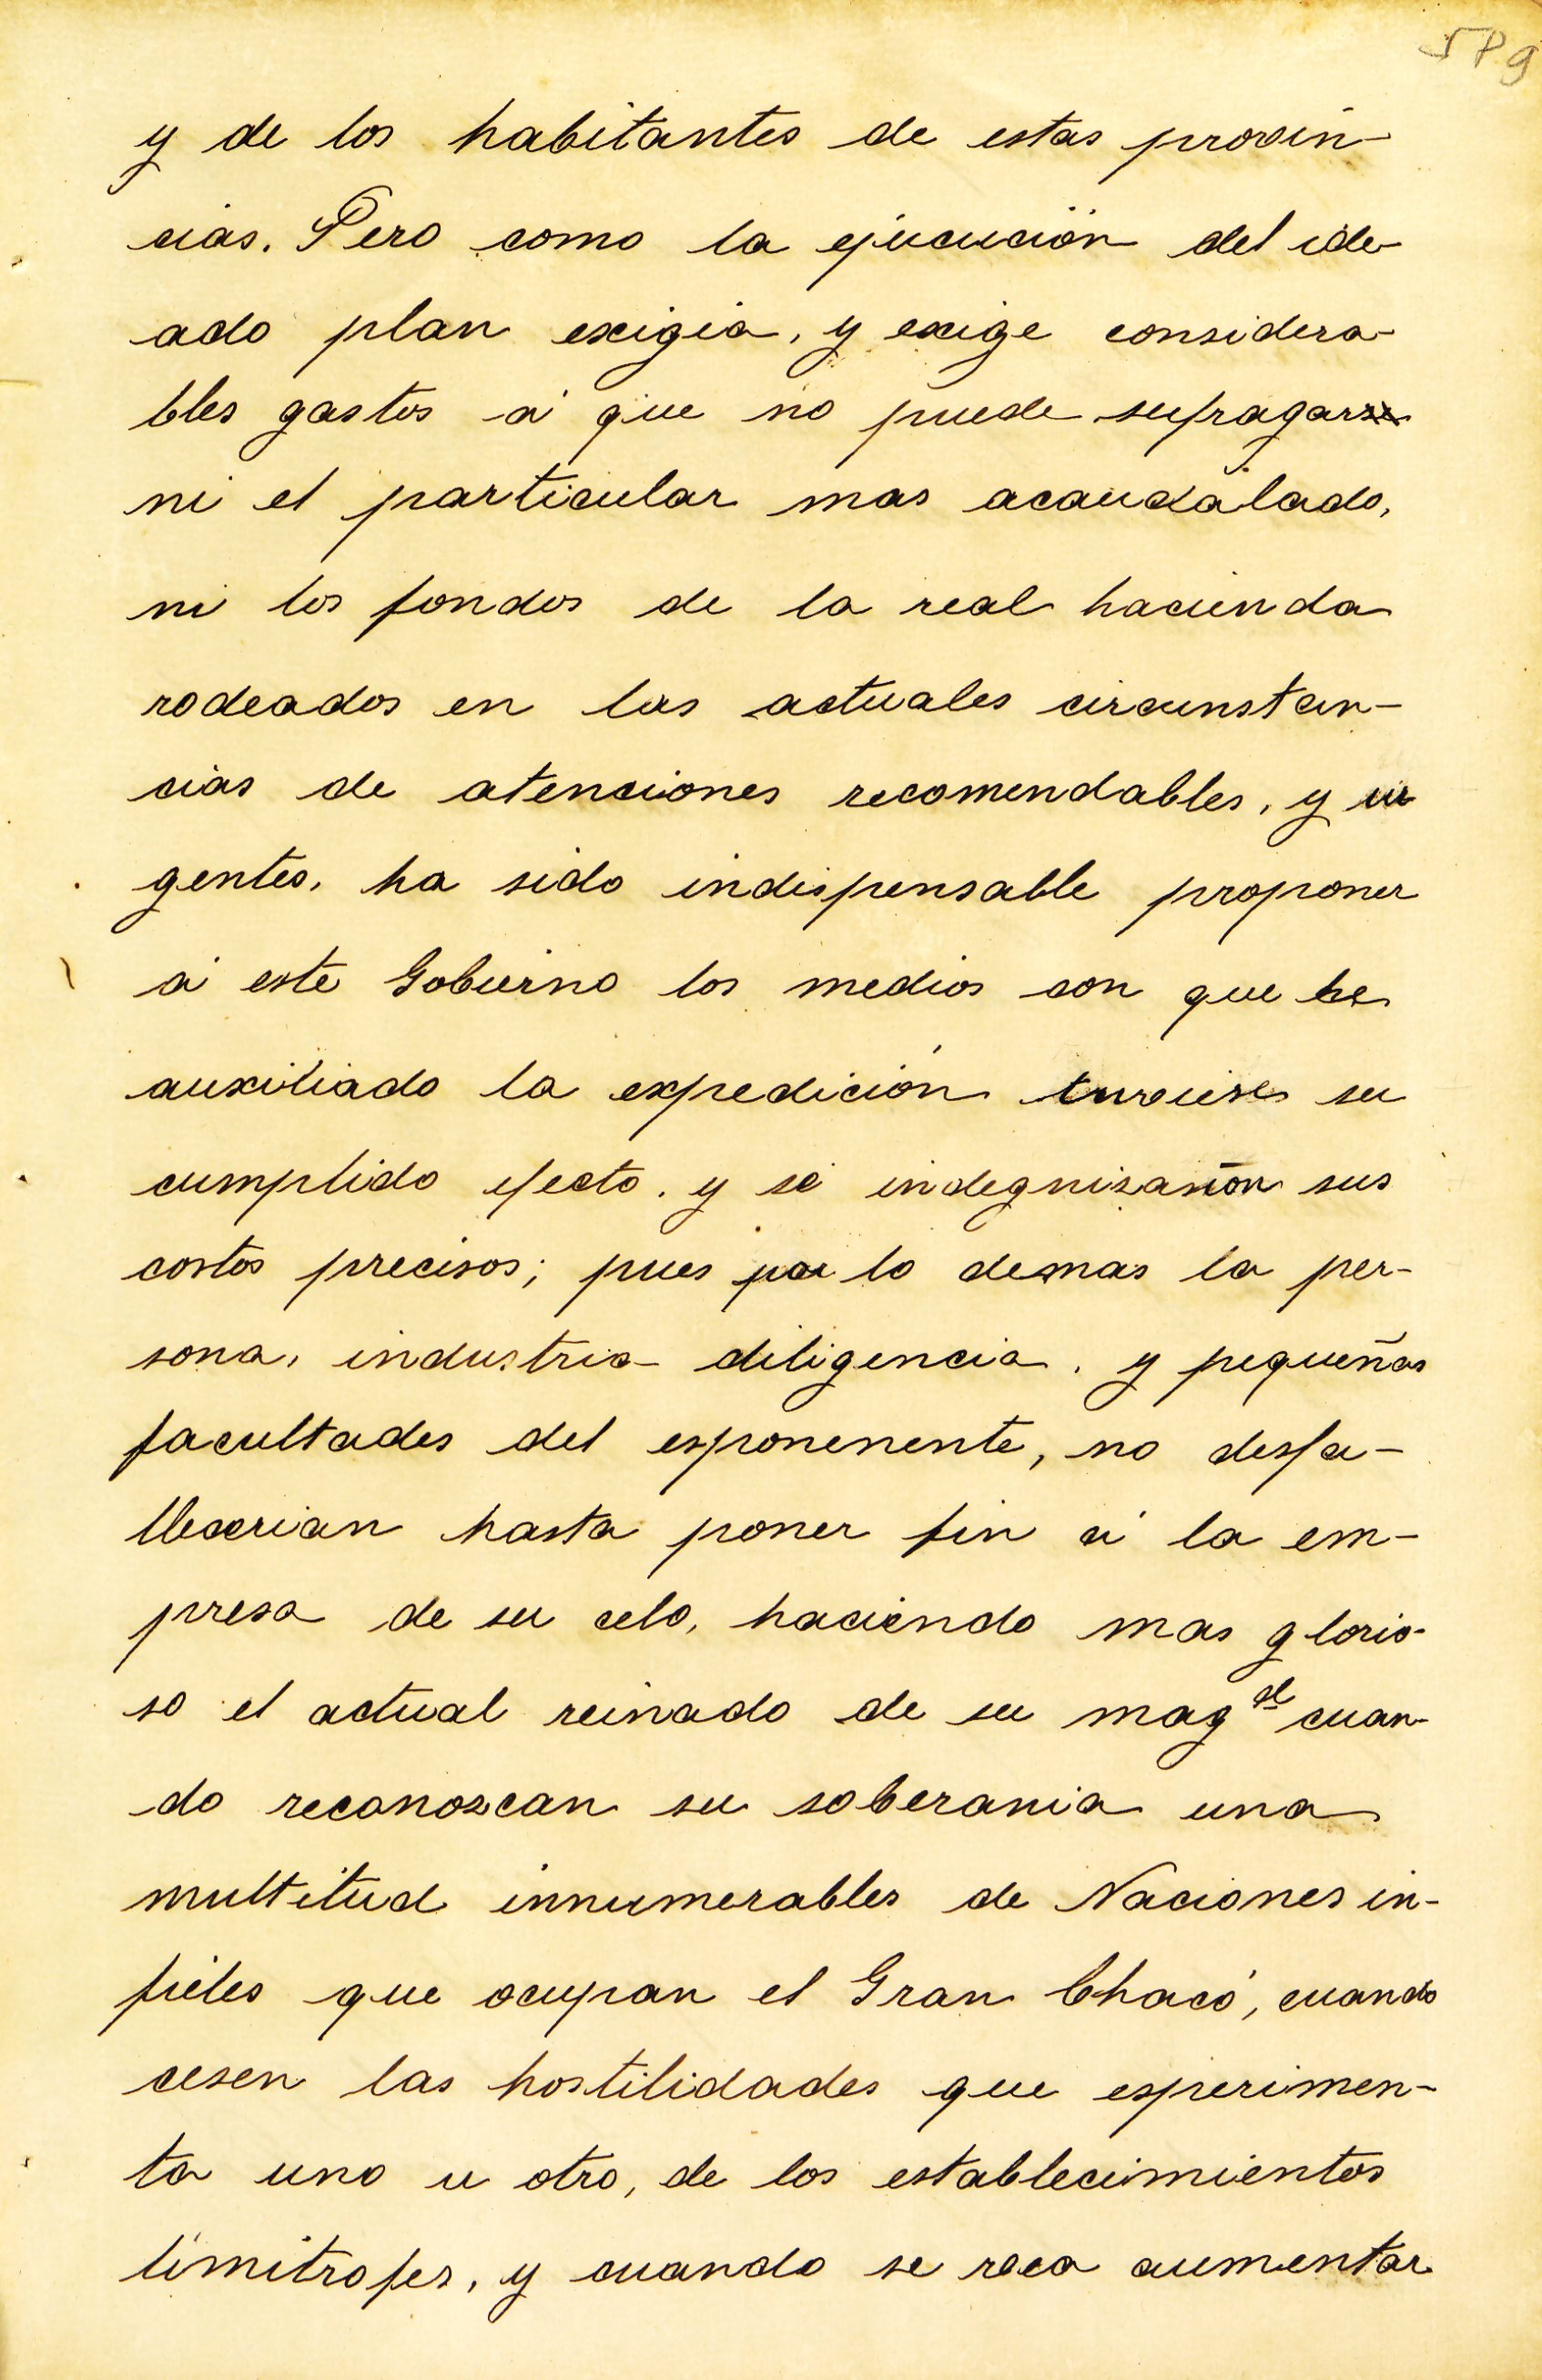 y de los habitantes de estas provin-
cias. Pero como la ejucución del ide-
ado plan exigia, y exige considera-
bles gastos á que no puede sufragar
ni el particular mas acaudalado,
ni los fondos de la real hacienda
rodeados en las actuales circunstan-
cias de atenciones recomendables, y ur
gentes, ha sido indispensable proponer
á este Gobierno los medios con que
auxiliado la expedición tuviese su
cumplido efecto, y se indegnizasion sus
costos precisos; pues por lo demas la per-
sona, industria diligencia, y pequeñas
facultades del esponenente, no desfa-
llecerian hasta poner fin á la em-
presa de su celo, haciendo mas glorio-
so el actual reinado de su mag.d cuan-
do reconozcan su soberania una
multitud innumerables de Naciones in-
fieles que ocupan el Gran Chacó, cuando
cesen las hostilidades que esperimen-
ta uno u otro, de los establecimientos
limitrofes, y cuando se vea aumentar